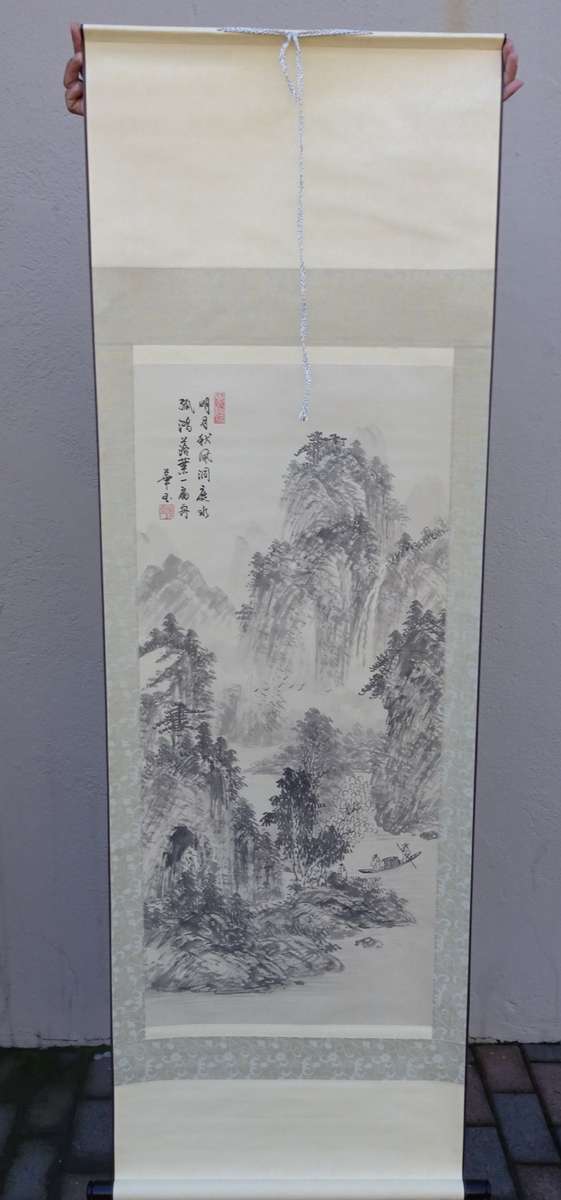 明月秋風洞庭水
孤鴻落葉一扁舟